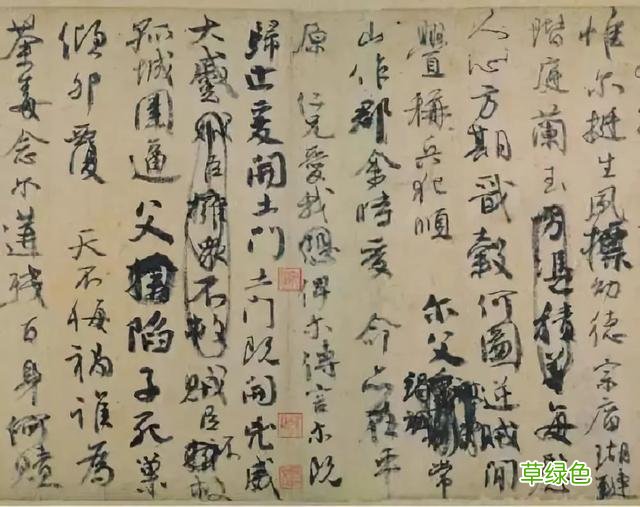 惟尔挺生夙標幼德宗庿瑚璉
階庭蘭玉方憑積善每慰
人心方期戩穀何圖逆賊閒
釁稱兵犯順 尔父竭誠常
山作郡余時受 命亦在平
原 仁兄愛我恐俾尔傳言尔既
歸止爰開土門土門既開凶威
大蹙賊臣擁衆不救賊臣不救
孤城圍逼父陷子死巢
傾卵覆 天不悔禍誰爲
荼毒念尔遘殘百身何贖
草绿色